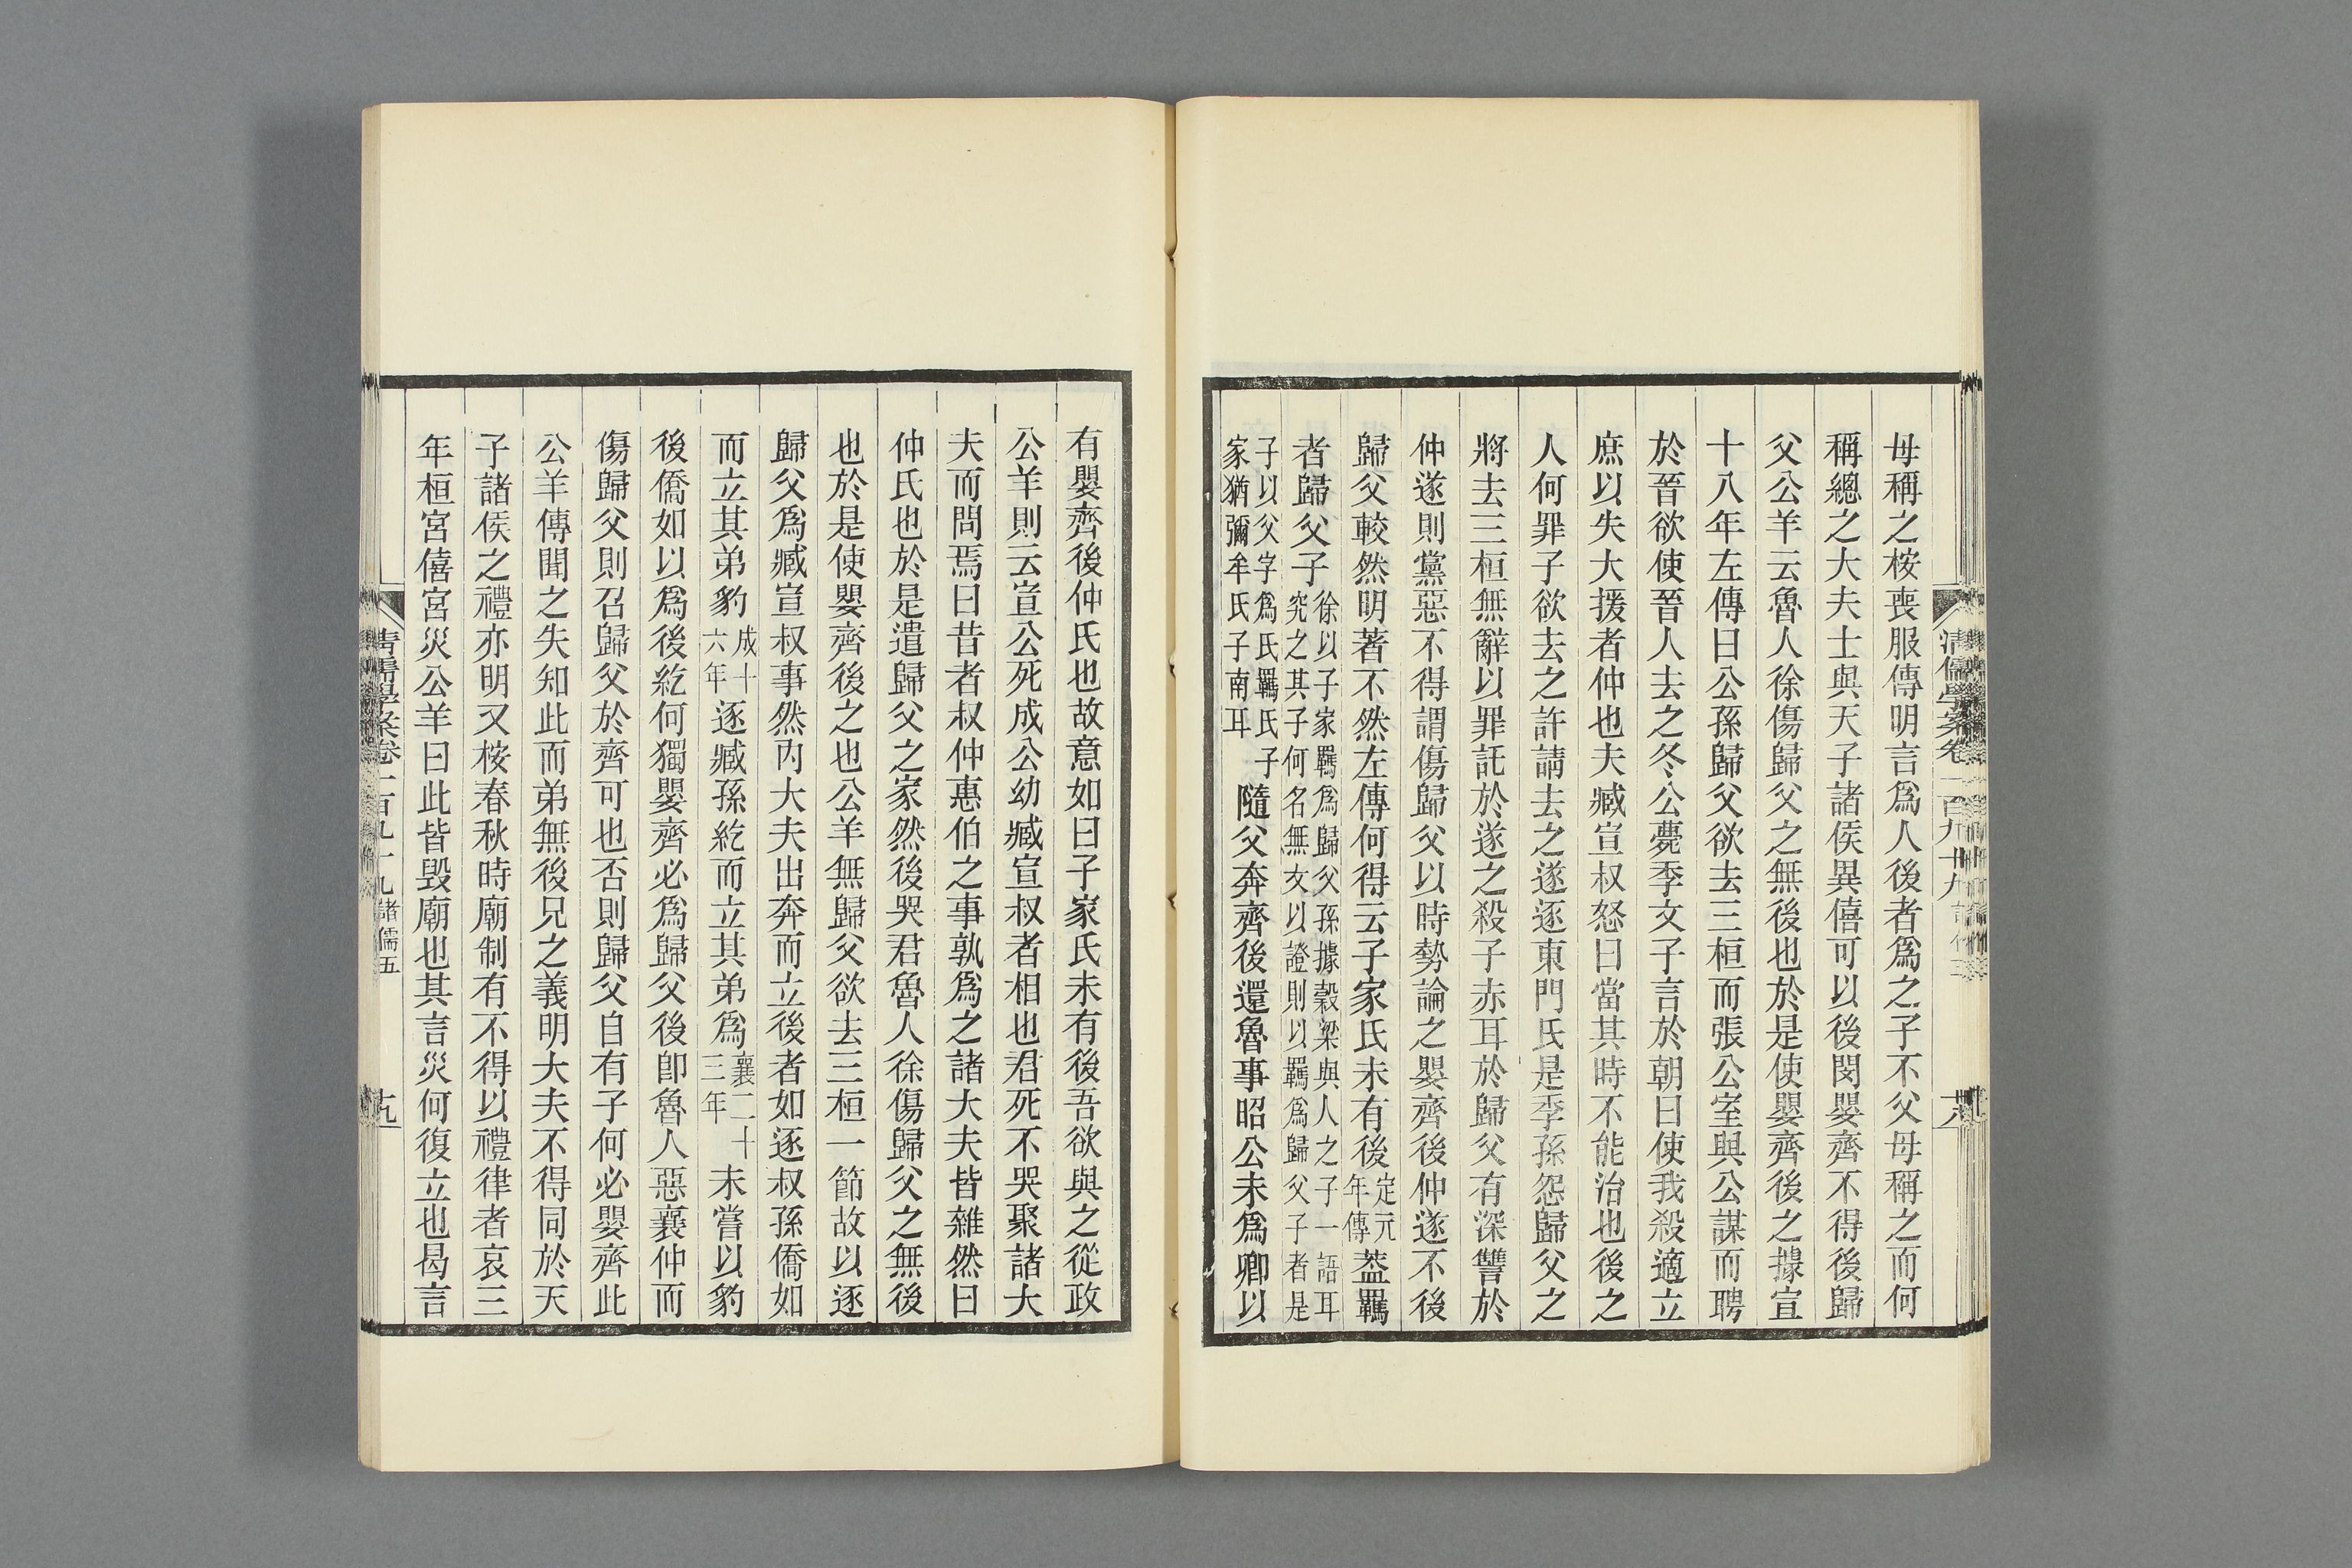 母稱之桉喪服傳明言爲人後者爲之子不父母稱之而何
稱總之大夫士與天子諸侯異僖可以後閔嬰齊不得後歸
父公羊云魯人徐傷歸父之無後也於是使嬰齊後之據宣
十八年左傳曰公孫歸父欲去三桓而張公室與公謀而聘
於晉欲使晉人去之冬公薨季文子言於朝曰使我殺適立
庶以失大援者仲也夫臧宣叔怒曰當其時不能治也後之
人何罪子欲去之許請去之遂逐東門氏是季孫怨歸父之
將去三桓無辭以罪託於遂之殺子赤耳於歸父有深讐於
仲遂則黨惡不得謂傷歸父以時勢論之嬰齊後仲遂不後
歸父較然明著不然左傳何得云子家氏未有後定元年傳葢羈
者歸父子徐以子家羈爲歸父孫據穀梁與人之子一語耳究之其子何名無文以證則以羈爲歸父子者是
子以父字爲氏羈氏子家猶彌牟氏子南耳隨父奔齊後還魯事昭公未爲卿以
清儒學案卷一百九十九
十八
有嬰齊後仲氏也故意如曰子家氏未有後吾欲與之從政
公羊則云宣公死成公幼臧宣叔者相也君死不哭聚諸大
夫而問焉曰昔者叔仲惠伯之事孰爲之諸大夫皆雜然曰
仲氏也於是遣歸父之家然後哭君魯人徐傷歸父之無後
也於是使嬰齊後之也公羊無歸父欲去三桓一節故以逐
歸父爲臧宣叔事然內大夫出奔而立後者如逐叔孫僑如
而立其弟豹成十六年逐臧孫紇而立其弟爲襄二十三年未嘗以豹
後僑如以爲後紇何獨嬰齊必爲歸父後卽魯人惡襄仲而
傷歸父則召歸父於齊可也否則歸父自有子何必嬰齊此
公羊傳聞之失知此而弟無後兄之義明大夫不得同於天
子諸侯之禮亦明又桉春秋時廟制有不得以禮律者哀三
年桓宮僖宮災公羊曰此皆毀廟也其言災何復立也曷言
清儒學案卷一百九十九 諸儒五
十九